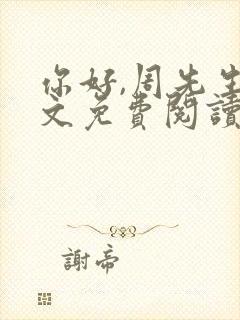 你好,周先生
文免費閱讀
謝帝